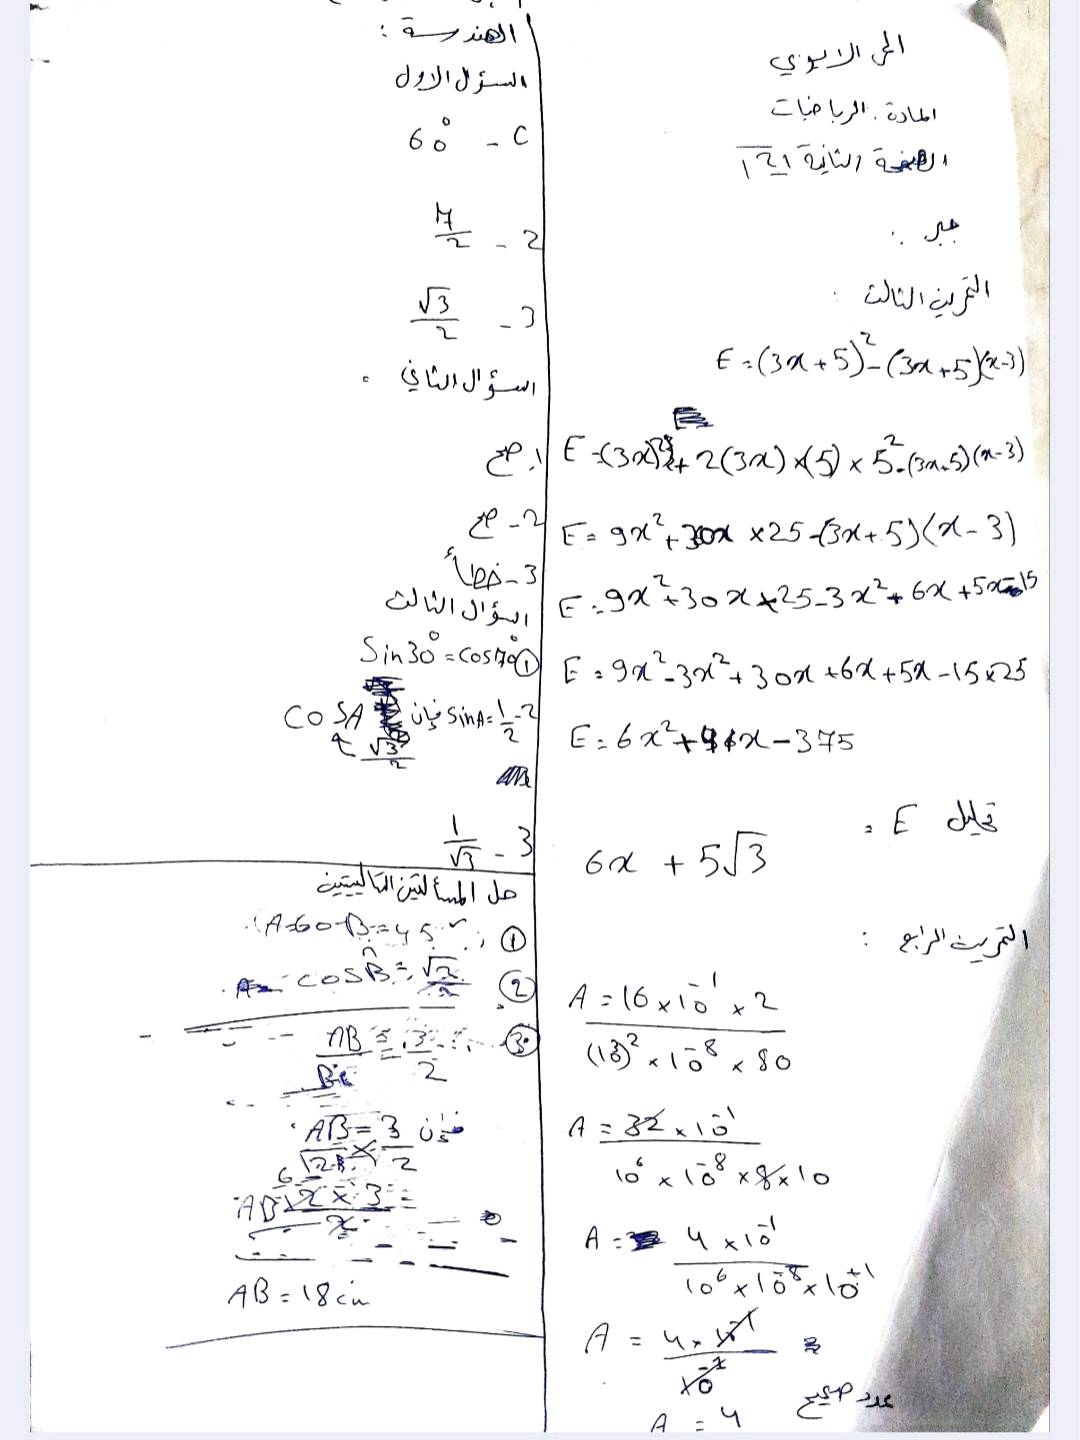 المادة. الرياضيات
الصفحة الثانية
جبر :
التمرين الثالث :
E = (3x + 5)² - (3x + 5)(x - 3)
E = (3x)² + 2(3x) × (5) × 5² - (3x + 5)(x - 3)
E = 9x² + 30x × 25 - (3x + 5)(x - 3)
E = 9x² + 30x × 25 - 3x² + 6x + 5x - 15
E = 9x² - 3x² + 30x + 6x + 5x - 15 × 25
E = 6x² + 41x - 375
تحليل E =
6x + 5√3
التمرين الرابع :
A = 16 × 10⁻¹ × 2 / (10³)² × 10⁻⁸ × 80
A = 32 × 10⁻¹ / 10⁶ × 10⁻⁸ × 8 × 10
A = 4 × 10⁻¹ / 10⁶ × 10⁻⁸ × 10⁺¹
A = 4 × 10⁻¹ / 10⁻¹
A = 4 عدد صحيح
الهندسة :
السؤال الاول
60° - C
2 -
3 - √3/2
السؤال الثاني .
1. صح
2 - صح
3 - خطأ
السؤال الثالث
① Sin30° = Cos70°
2 - SinA = 1/2 فإن COSA √3/2
3 - 1/√3
حل المسألتين التاليتين
① A=60 B=45
② COSB̂ = √2/2
③ AB/BC = 3/2
فإن AB/12 = 3/2
AB = 18 cm